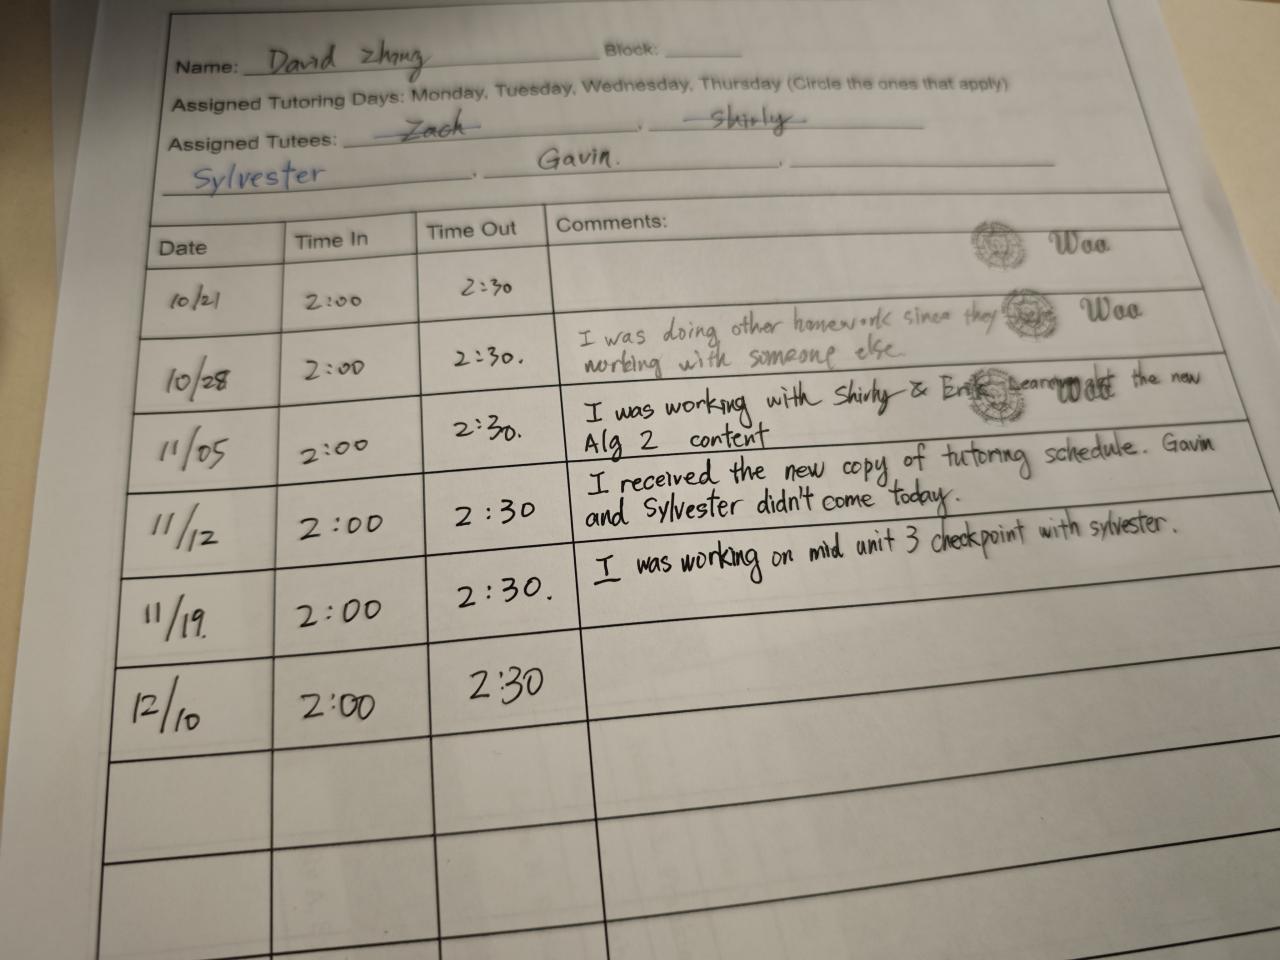 Name: David Zhang Block:
Assigned Tutoring Days: Monday, Tuesday, Wednesday, Thursday (Circle the ones that apply)
Assigned Tutees: Zach, Shirly
Sylvester, Gavin.,
Date Time In Time Out Comments:
10/21 2:00 2:30 Woo
10/28 2:00 2:30. I was doing other homework since they Woo
working with someone else.
11/05 2:00 2:30. I was working with Shirly & Erik the new
Alg 2 content
11/12 2:00 2:30 I received the new copy of tutoring schedule. Gavin
and Sylvester didn't come today.
11/19. 2:00 2:30. I was working on mid unit 3 checkpoint with sylvester.
12/10 2:00 2:30